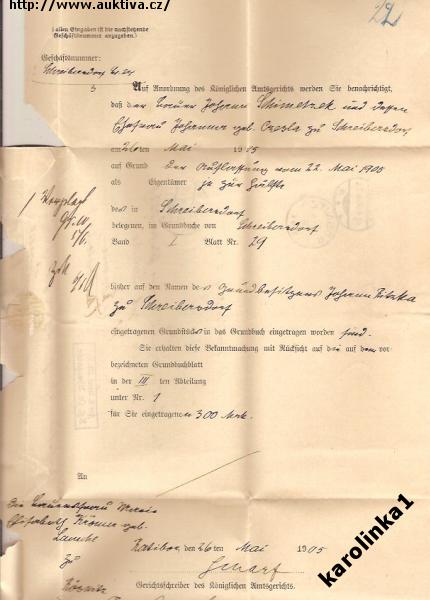 http://www.auktiva.cz/
22
(allen Eingaben ist die nachstehende
Geschäftsnummer anzugeben.)
Geschäftsnummer:
Schreibersdorf
Auf Anordnung des Königlichen Amtsgerichts werden Sie benachrichtigt,
daß der Bauer Johann Schimetzek und dessen
Ehefrau Johanna geb. zu Schreibersdorf
am 26ten Mai 1905
auf Grund der Auflassung vom 22. Mai 1905
als Eigentümer je zur Hälfte
des in Schreibersdorf
belegenen, im Grundbuche von Schreibersdorf
Band I Blatt Nr. 29
bisher auf den Namen des Grundbesitzers Johann
zu Schreibersdorf
eingetragenen Grundstücks in das Grundbuch eingetragen worden sind.
Sie erhalten diese Bekanntmachung mit Rücksicht auf die auf dem vor-
bezeichneten Grundbuchblatt
in der III ten Abteilung
unter Nr. 1
für Sie eingetragenen 300 Mrk.
An
die Bauersfrau Maria
geb.
zu
Ratibor, den 26ten Mai 1905
Scharf
Gerichtsschreiber des Königlichen Amtsgerichts.
karolinka1